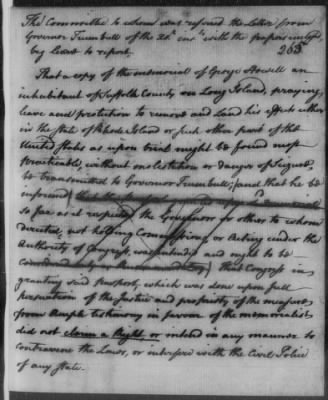 The Committee to whom was refered the Letter from
Governor Trumbull of the 25th inst. with the papers enclosed
by leave to report.
263
That a copy of the memorial of George Howell an
inhabitant of Suffolk County on Long Island, praying
leave and protection to remove and Land his effects either
in the state of Rhode Island or such other part of the
United States as upon trial might be found most
practicable, without molestation or danger of Seizure,
be transmitted to Governor Trumbull; and that he be
informed that the
so far as it respects the Governor for others to whom
directed, not holding Commissions, or Acting under the
Authority of Congress, was and ought to be
that Congress in
granting said Passport, which was done upon full
persuasion of the Justice and propriety of the measure
from Ample testimony in favour of the memorialist
did not claim a Right, or intend in any manner to
contravene the Laws, or interfere with the Civil Police
of any State.